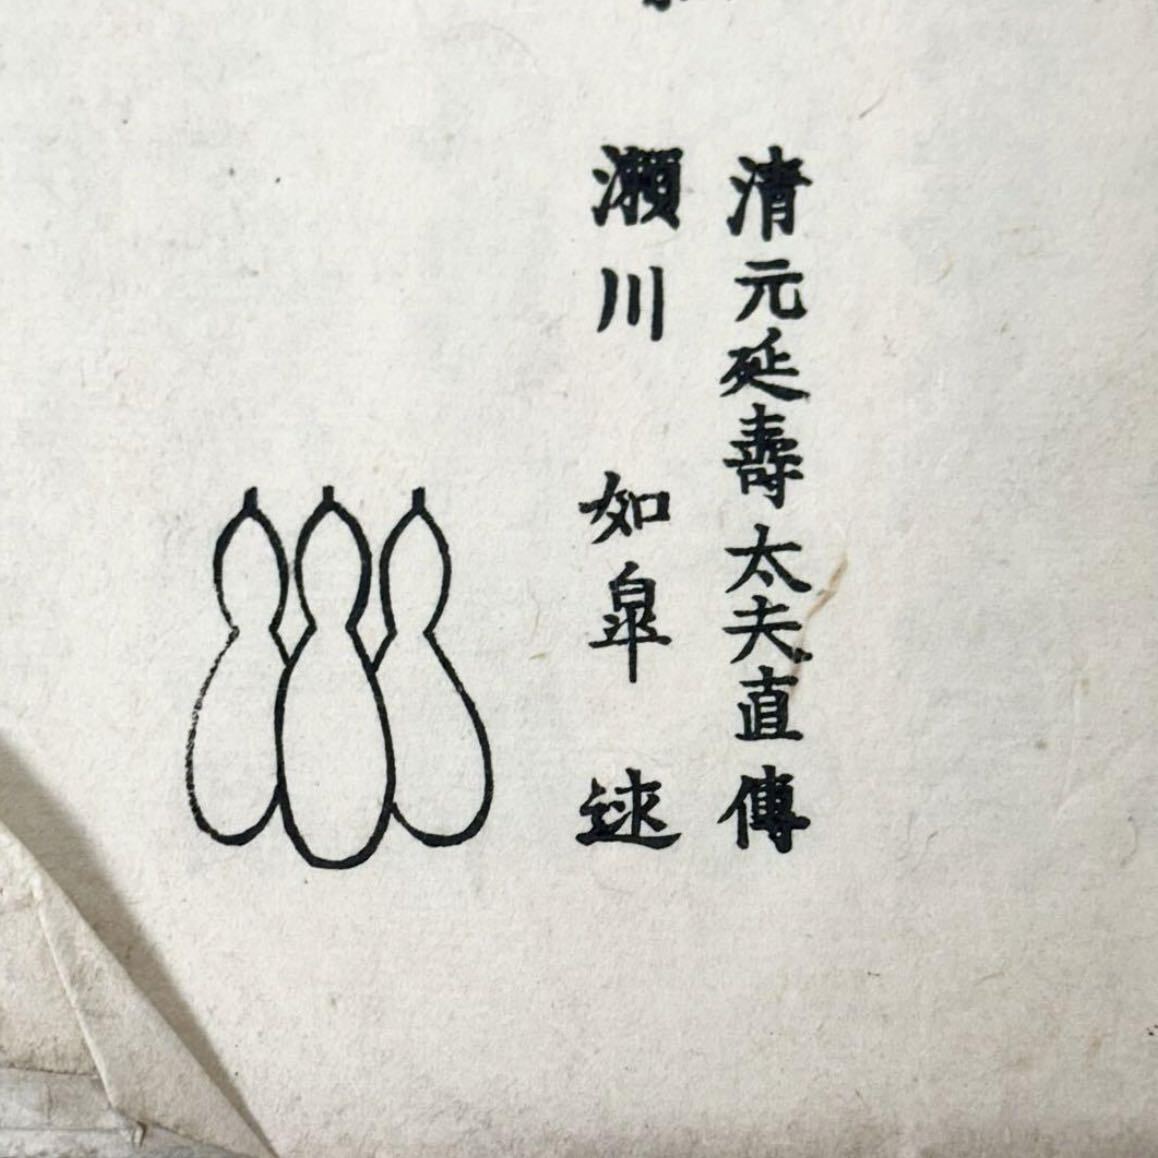 清元延壽太夫直傳
瀬川如皐述